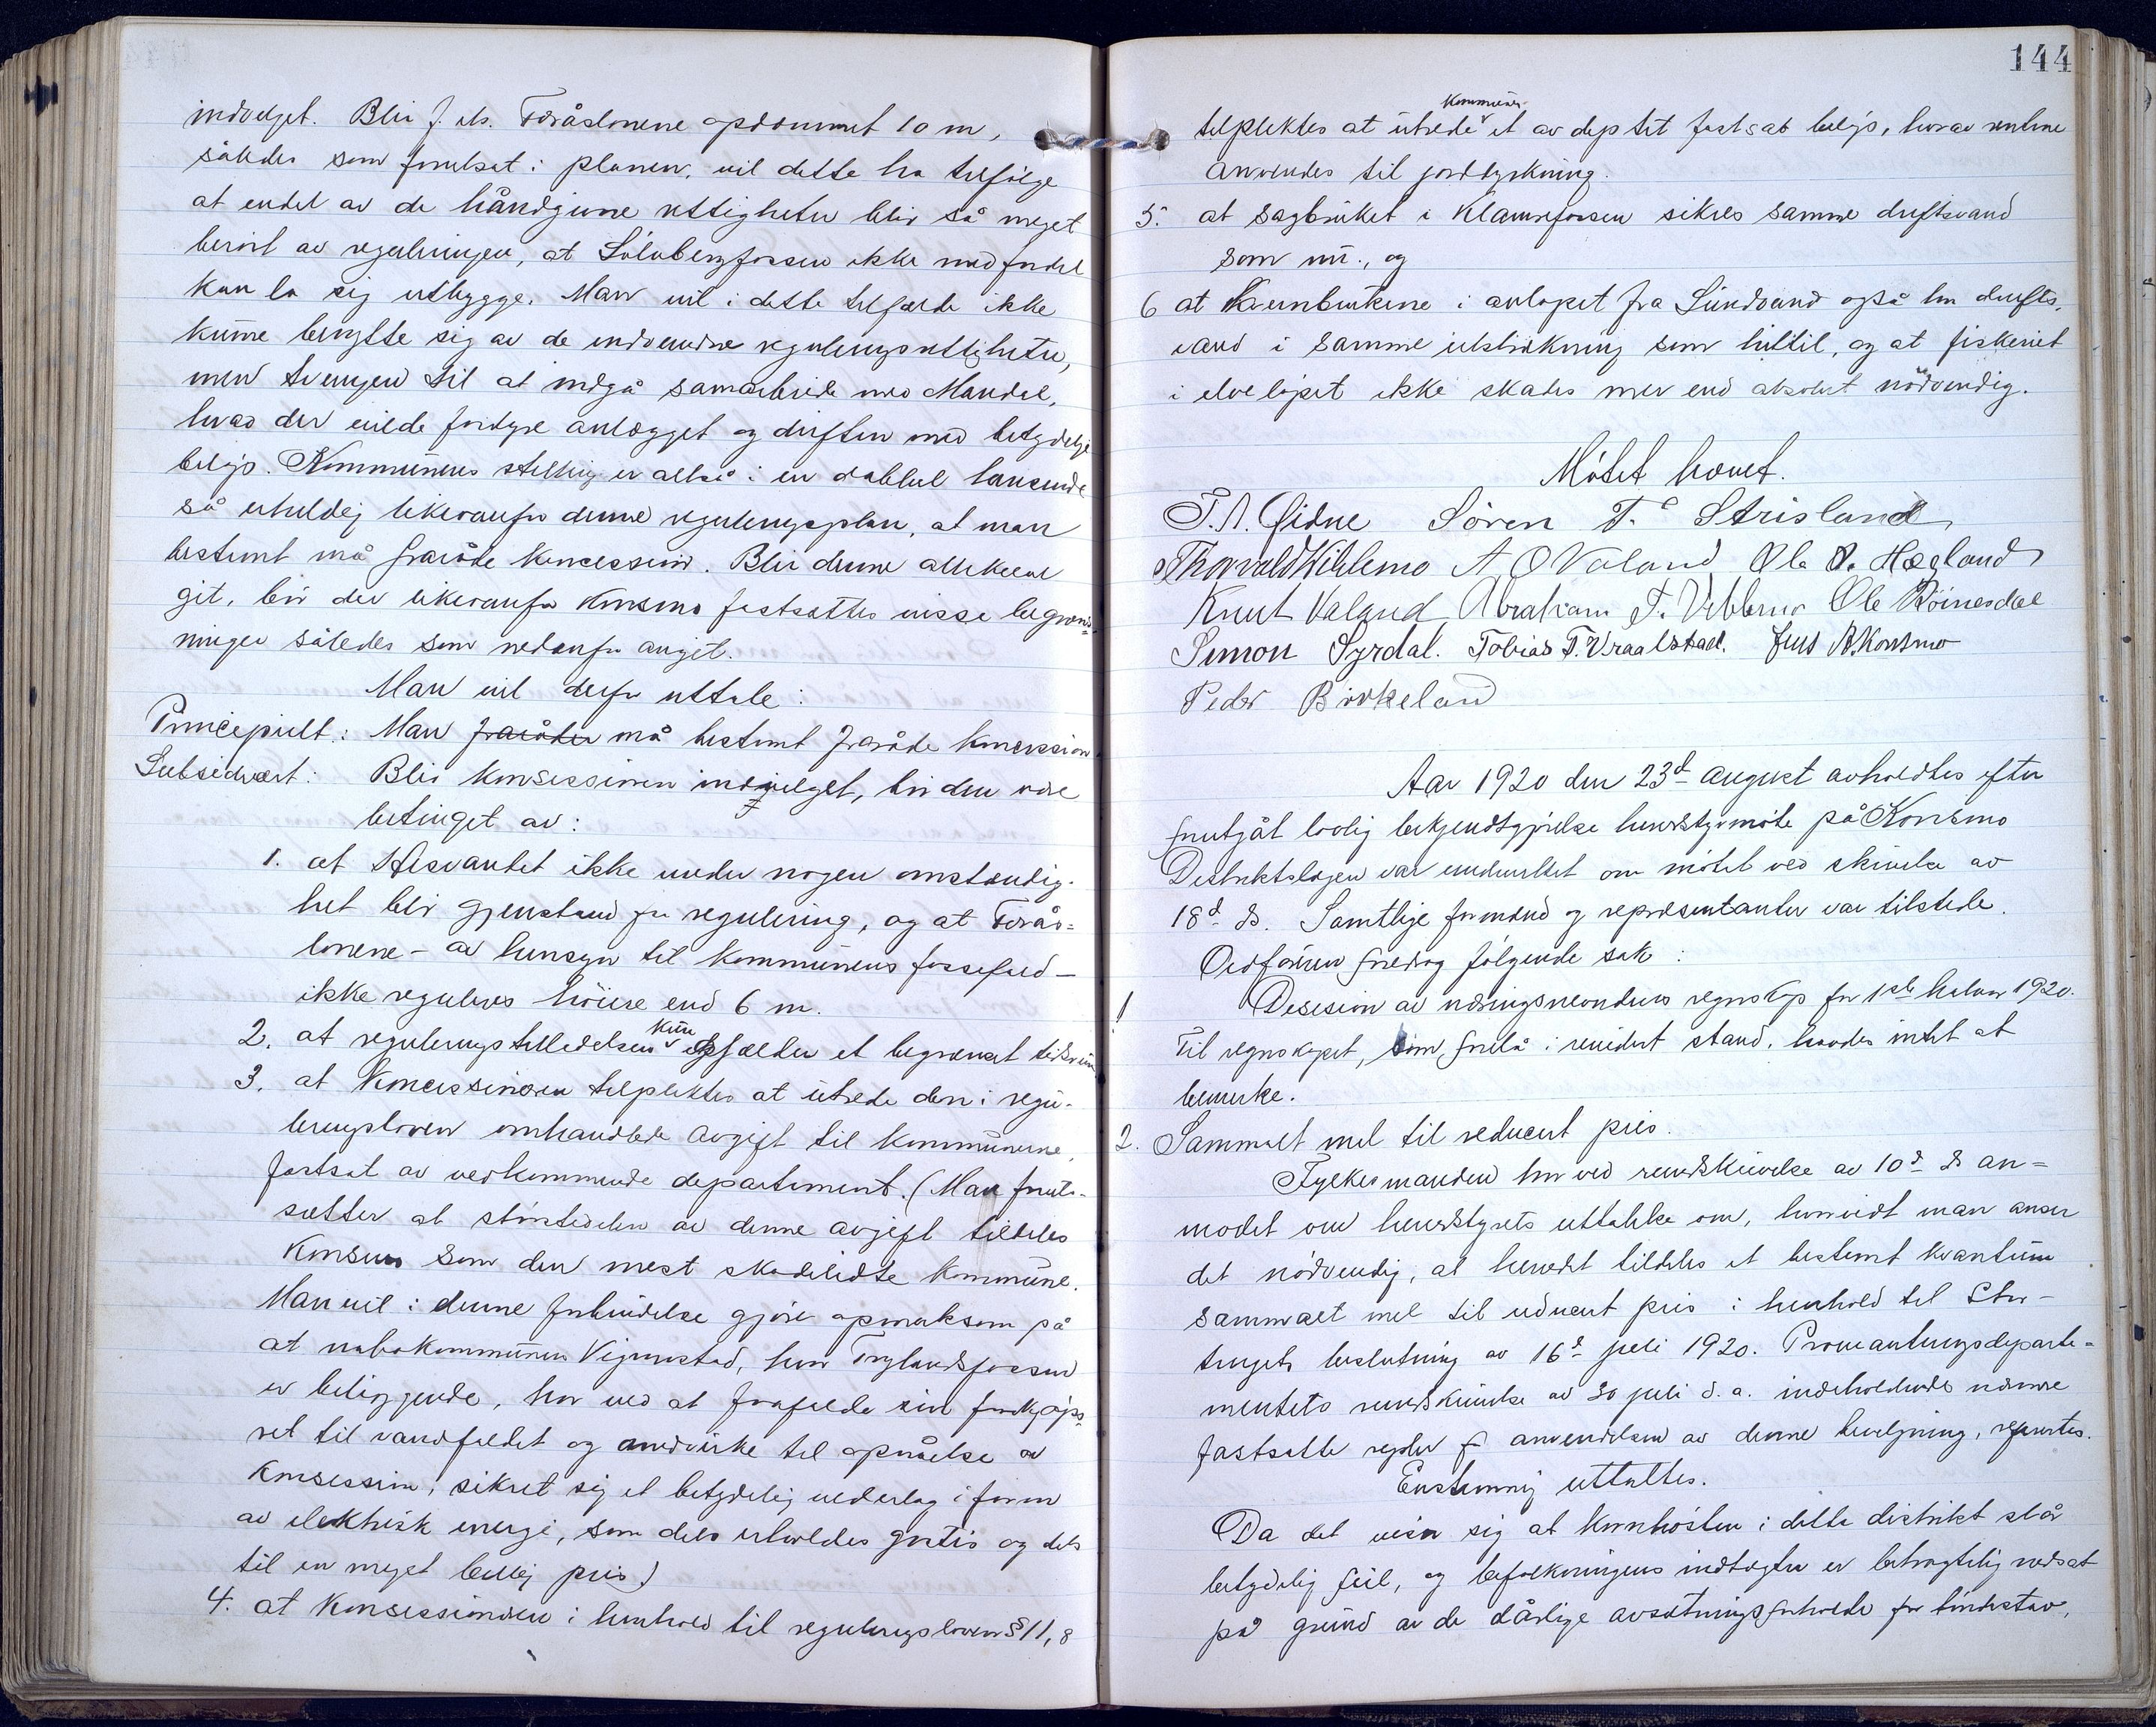 indvilget. Blir f. eks. Foråslonene opdemmet 10 m,
således som forutsat i planen, vil dette ha tilfølge
at endel av de håndgivne rettigheter blir så meget
berört av reguleringen, at Sölvbergfossen ikke med fordel
kan la sig utbygge. Man vil i dette tilfælde ikke
kunne benytte sig av de indvundne reguleringsrettigheter,
men tvunget til at indgå samarbeide med Mandal,
hvad der vilde fordyre anlægget og driften med betydelige
belöp. Kommunens stilling er altså i en dobbel henseende
så uheldig likeoverfor denne reguleringsplan, at man
bestemt må fraråde koncession. Blir denne allikevel
git, bör der likeoverfor Konsmo fastsættes visse begræns-
ninger således som nedenfor angit.
Man vil derfor uttale:
Principielt: Man fraråder må bestemt fraråde koncession.
Subsidiært: Blir konsessionen indvilget, bör den være
betinget av:
1. at Hesvandet ikke under nogen omstændig-
het blir gjenstand for regulering, og at Forås-
lonene – av hensyn til kommunens fossefald –
ikke reguleres höiere end 6 m.
2. at reguleringstilladelsen kun gjælder et begrænset tidsrum
3. at koncessionæren tilpliktes at utrede den i regu-
leringsloven omhandlede avgift til kommunerne,
fastsat av vedkommende departement. (Man forut-
sætter at störstedelen av denne avgift tildeles
Konsmo som den mest skadelidte kommune.
Man vil i denne forbindelse gjöre opmerksom på
at nabokommunen Vigmostad, hvor Trylandsfossen
er beliggende, har ved at frafalde sin forkjöps-
ret til vandfaldet og medvirke til opnåelse av
konsession, sikret sig et betydelig vederlag i form
av elektrisk energi, som dels erholdes gratis og dels
til en meget billig pris.)
4. at konsessionæren i henhold til reguleringsloven § 11, 8
144
tilpliktes at utrede kommunen et av dep tet fastsat belöp, hvorav rentene
anvendes til jorddyrkning.
5. at sagbruket i Klamrefossen sikres samme driftsvand
som nu., og
6 at Kvernbrukene i avlöpet fra Sundvand også har drifts-
vand i samme utstrækning som hittil, og at fiskeriet
i elvelöpet ikke skades mer end absolut nödvendig.
Mötet hævet.
T. A. Øidne Sören T. Strisland
Thorvald Viblemo A O Valand Ole O. Hægland
Knut Valand Abraham T. Viblemo Ole Röinesdal
Simon Syrdal. Tobias T. Vraalstad. Jens A. Konsmo
Peder Birkeland
Aar 1920 den 23d august avholdtes efter
forutgåt lovlig bekjendtgjörelse herredstyremöte på Konsmo
Distriktslægen var underrettet om mötet ved skrivelse av
18d ds. Samtlige formænd og repræsentanter var tilstede.
Ordföreren foredrog fölgende sak:
1 Desision av næringsnevndens regnskap for 1ste halvaar 1920.
Til regnskapet, som forelå i revidert stand, havdes intet at
bemerke.
2. Sammalt mel til reducert pris.
Fylkesmanden har ved rundskrivelse av 10d ds an=
modet om herredstyrets uttalelse om, hvorvidt man anser
det nödvendig, at herredet tildeles et bestemt kvantum
sammalt mel til reducert pris i henhold til Stor-
tingets beslutning av 16d juli 1920. Provianteringsdeparte=
mentets rundskrivelse av 30 juli d. a. indeholdende nærmere
fastsatte regler for anvendelsen av denne bevilgning, refereres.
Enstemmig uttaltes.
Da det viser sig at kornhösten i dette distrikt slår
betydelig feil, og befolkningens indtægter er betragtelig nedsat
på grund av de dårlige avsætningsforholde for bindstav,